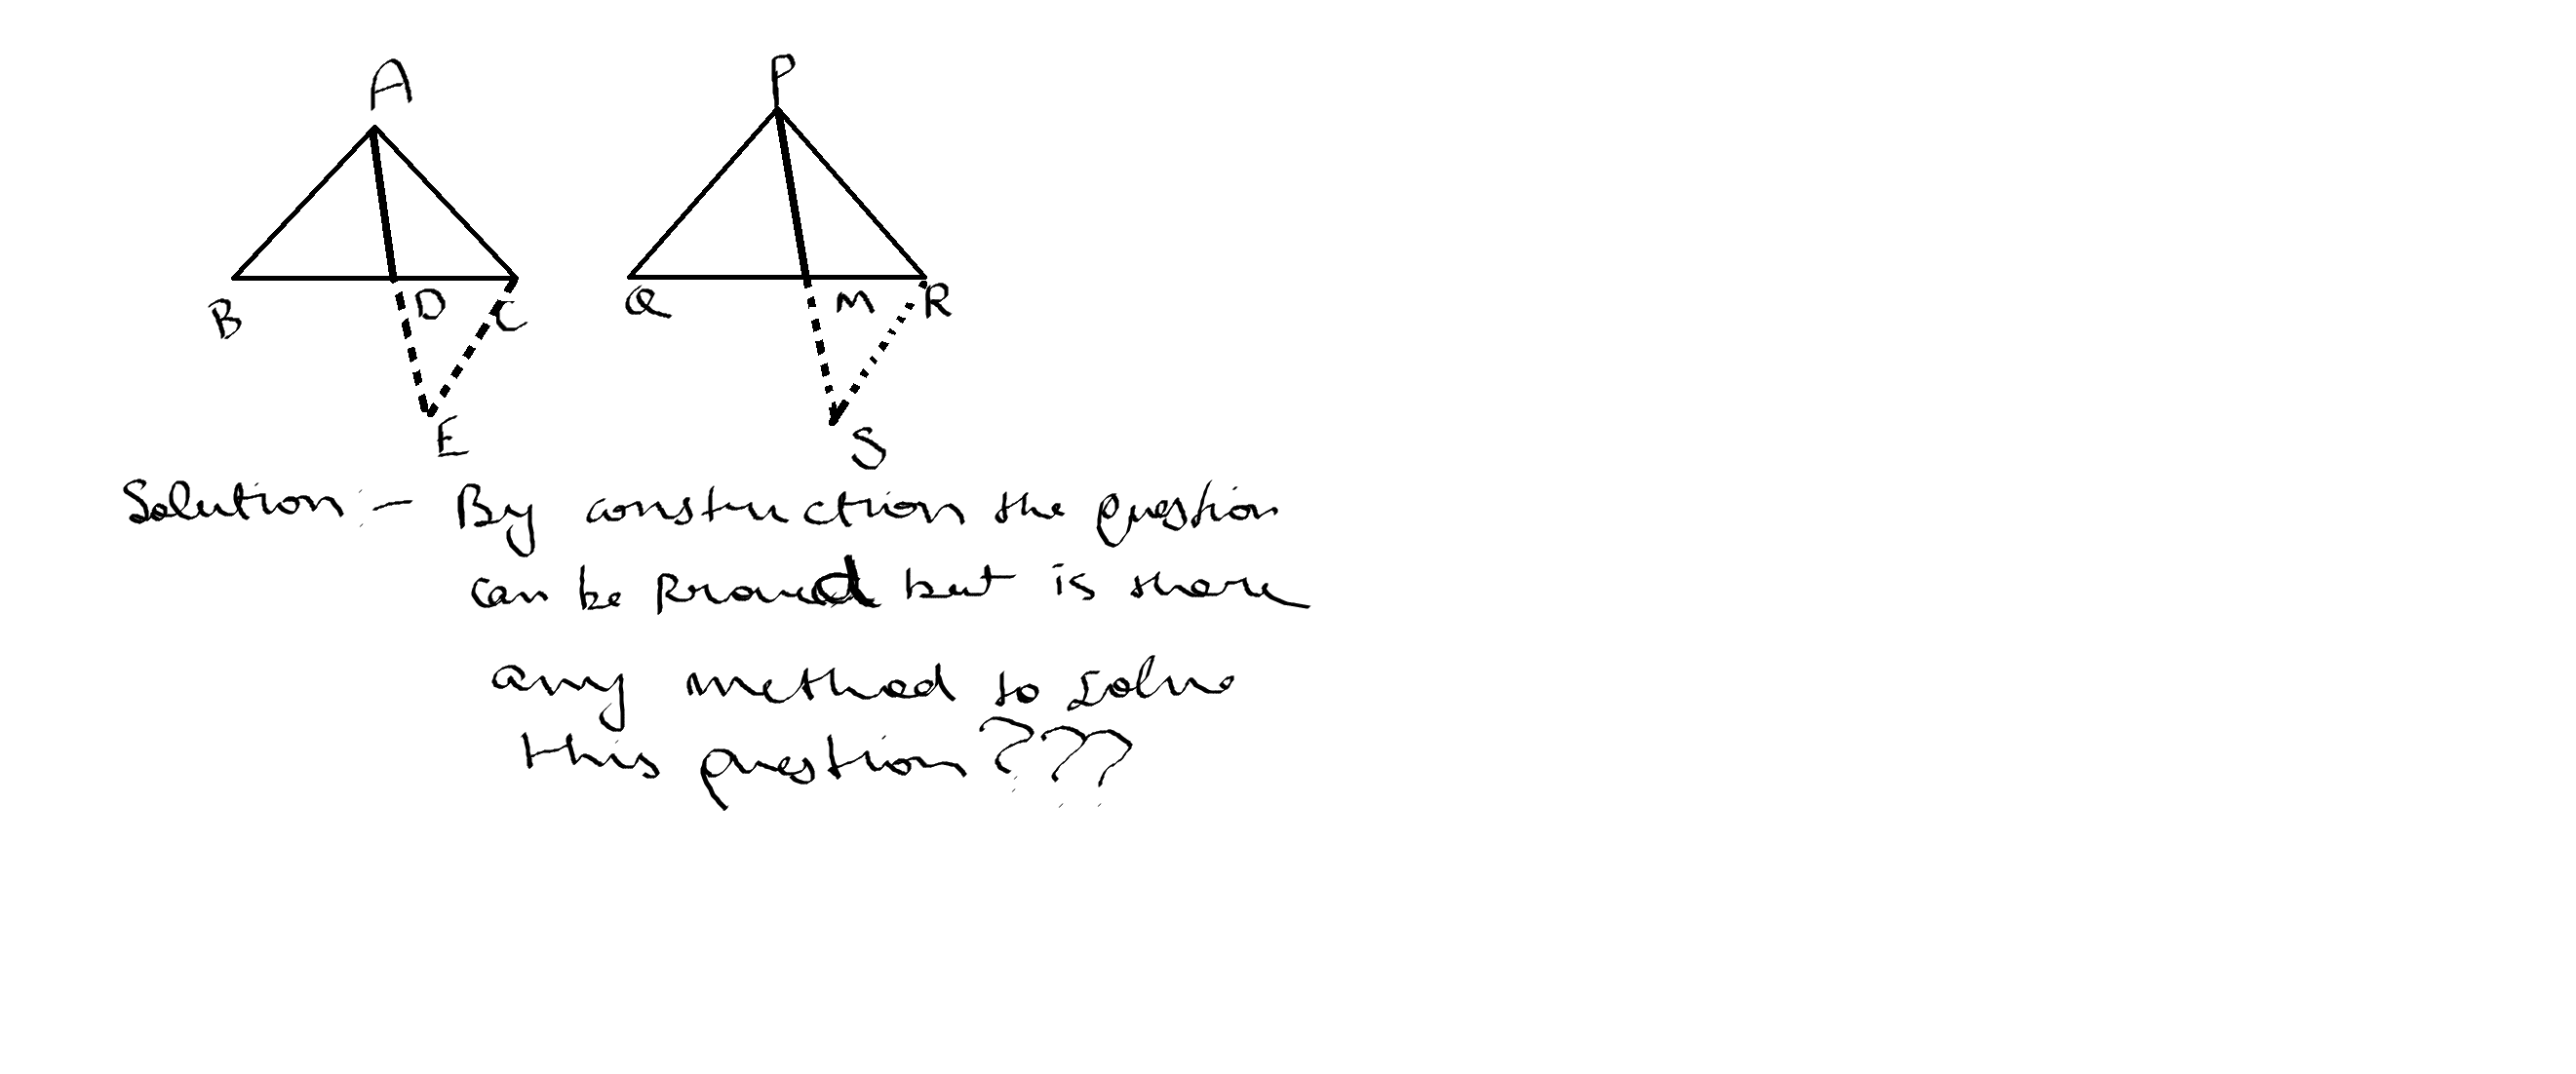 A P
B D C Q M R
E S
Solution :- By construction the question
can be Proved but is there
any method to solve
this question ???